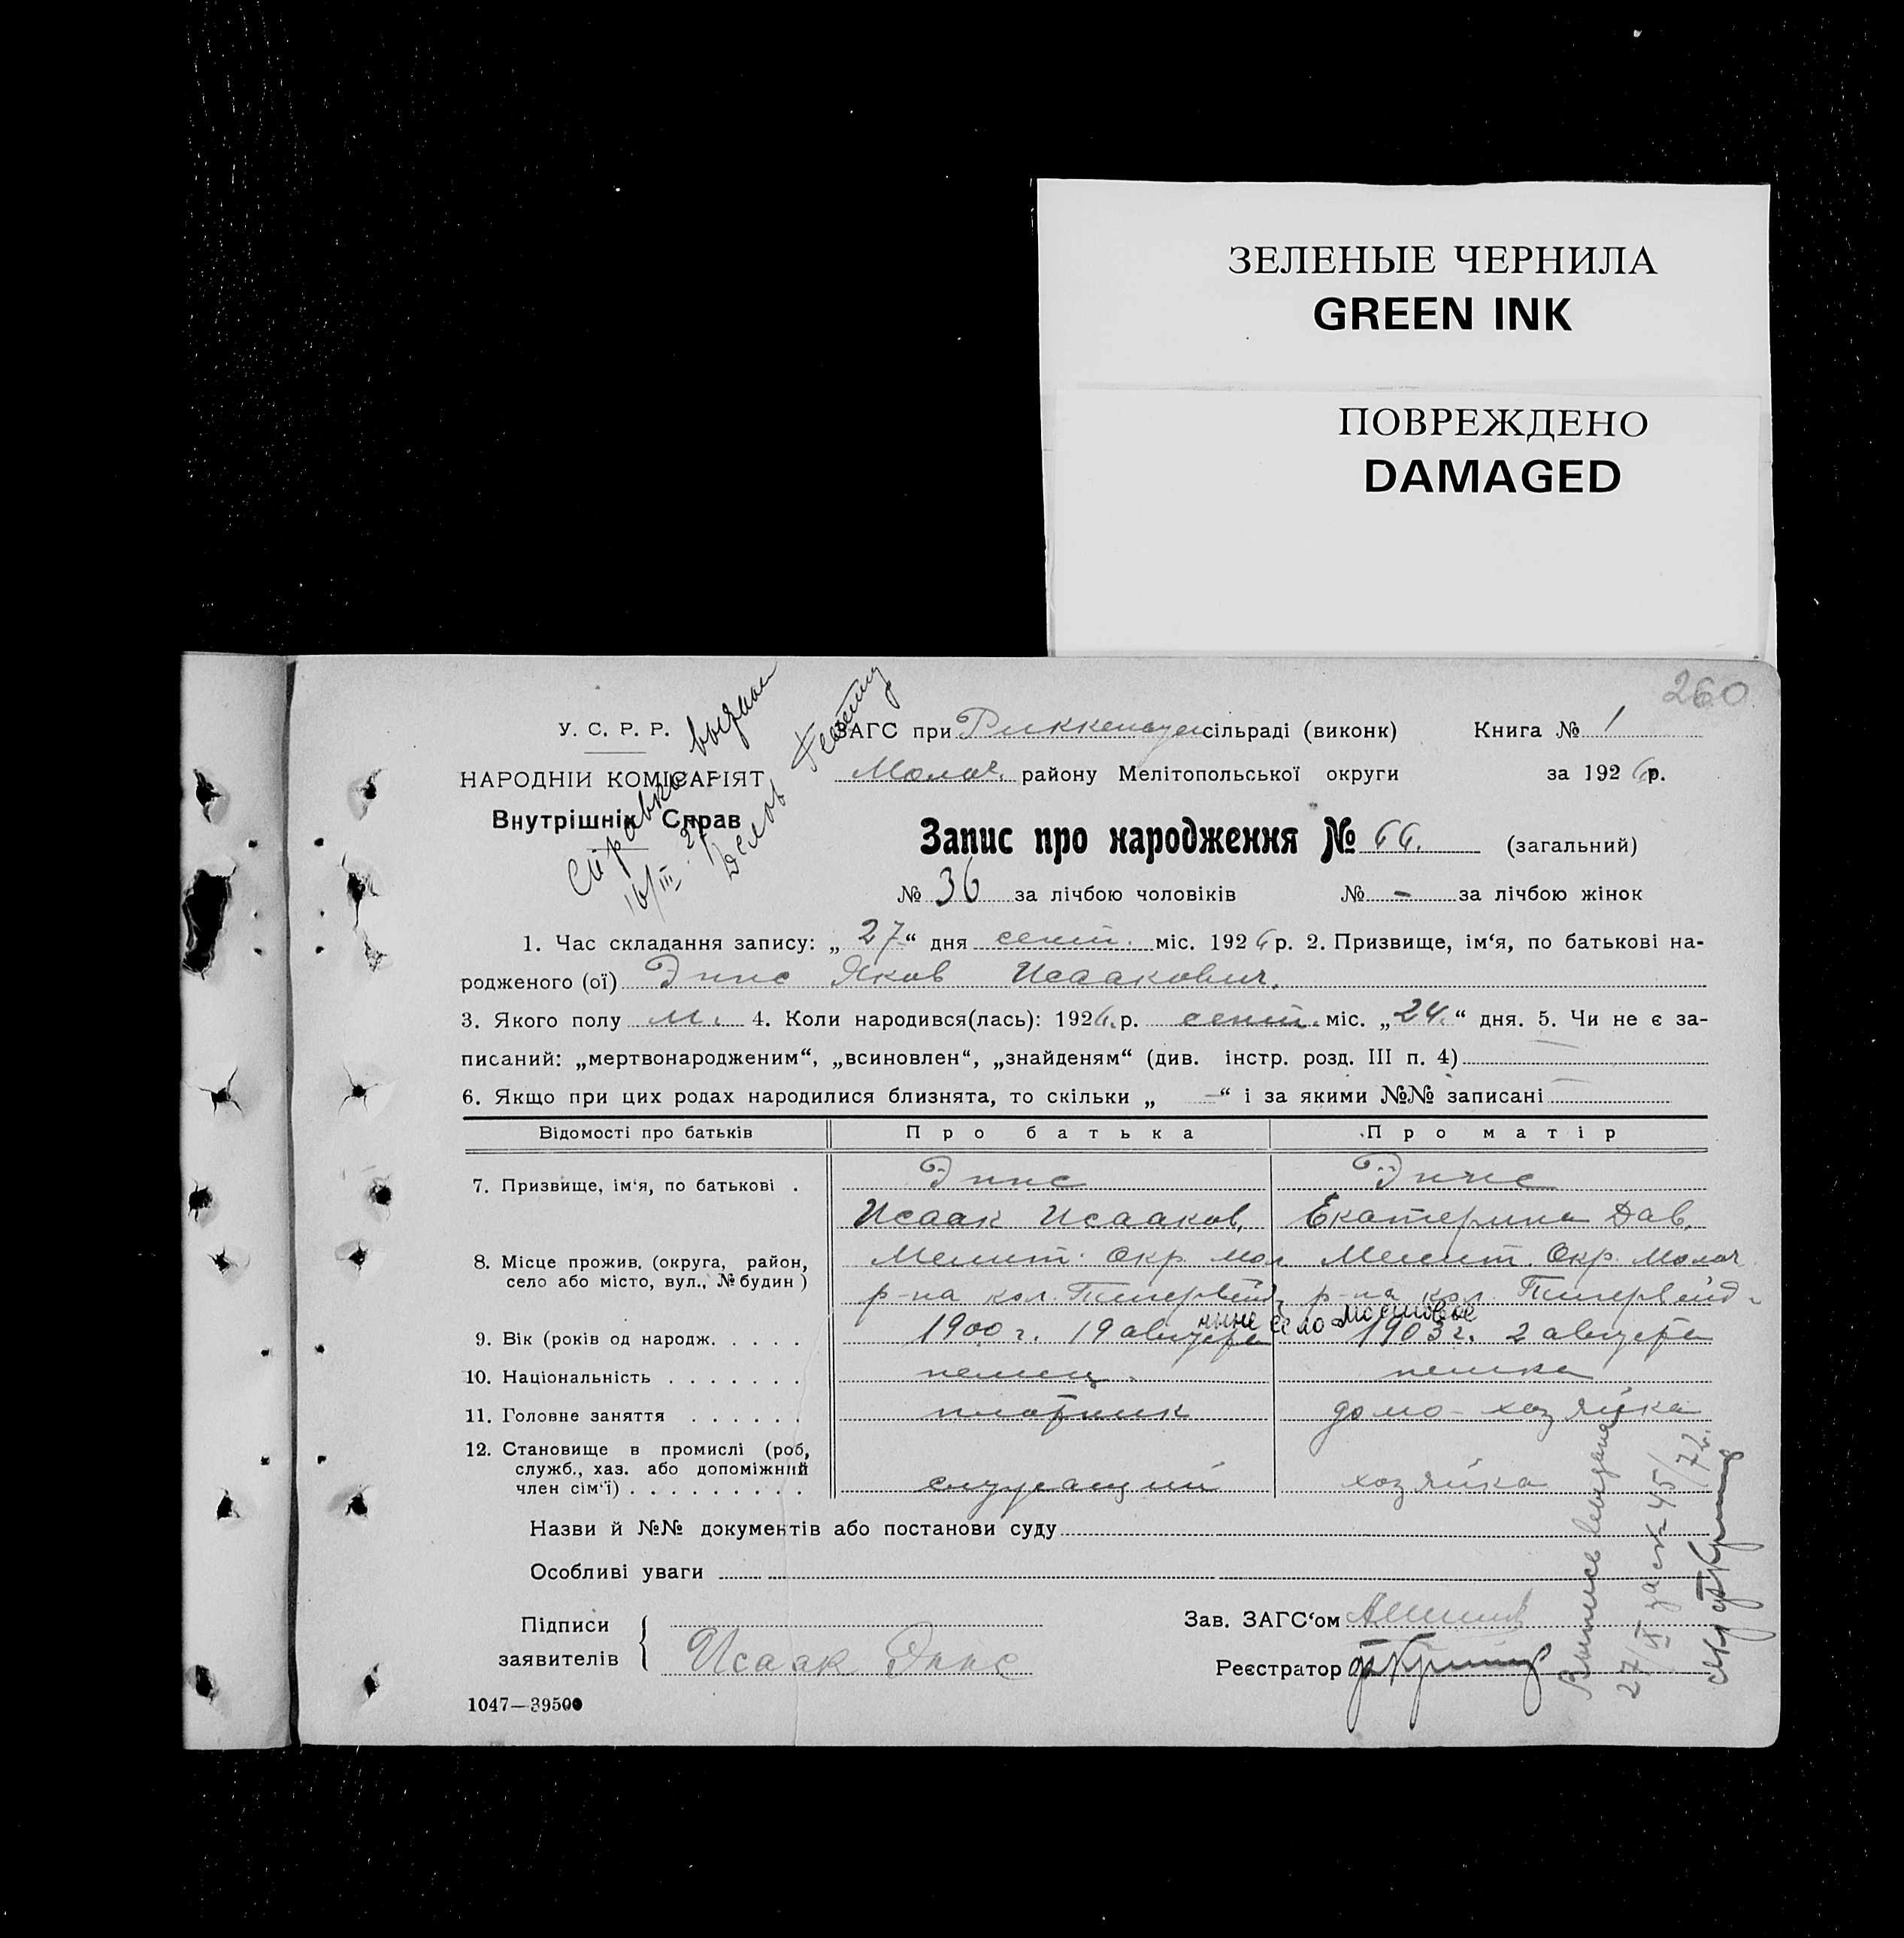 ЗЕЛЕНЫЕ ЧЕРНИЛА
GREEN INK
ПОВРЕЖДЕНО
DAMAGED
260
У. С. Р. Р.
НАРОДНІЙ КОМІСАРІЯТ
Внутрішніх Справ
Справка выдана
16/III 27
ЗАГС при Риккенауск сільраді (виконк)
Молоч. району Мелітопольської округи
Книга № 1
за 1926 р.
Запис про народження № 66. (загальний)
№ 36 за лічбою чоловіків № – за лічбою жінок
1. Час складання запису: „27“ дня сент. міс. 1926 р. 2. Призвище, ім‘я, по батькові на-
родженого (ої) Эппс Яков Исаакович.
3. Якого полу м. 4. Коли народився(лась): 1926 р. сент. міс. „24.“ дня. 5. Чи не є за-
писаний: „мертвонародженим“, „всиновлен“, „знайденям“ (див. інстр. розд. III п. 4)
6. Якщо при цих родах народилися близнята, то скільки „ –“ і за якими №№ записані
Відомості про батьків Про батька Про матір
7. Призвище, ім‘я, по батькові . Эппс Эппс
Исаак Исааков. Екатерина Дав.
8. Місце прожив. (округа, район, Мелит. Окр. мол Мелит. Окр. Молоч
село або місто, вул., № будин) р-на кол. Тигервейд, р-на кол. Тигервейд-
ныне село Мостовое
9. Вік (років од народж. . . . . 1900 г. 19 августа 1903 г. 2 августа
10. Національність . . . . . . . немец немка
11. Головне заняття . . . . . . плотник домо-хозяйка
12. Становище в промислі (роб,
служб., хаз. або допоміжний
член сім‘ї) . . . . . . . . . служащий хозяйка
Назви й №№ документів або постанови суду
Особливі уваги
Підписи
заявителів Исаак Эппс
Зав. ЗАГС‘ом
Реєстратор
1047—39500
27/II за № 45/72.